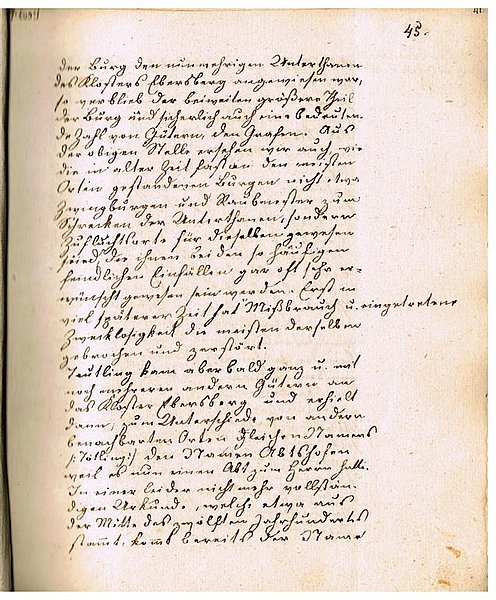 45.
der Burg den nunmehrigen Unterthanen
des Klosters Ebersberg angewiesen war,
so verblieb der beiweiten größere Theil
der Burg und sicherlich auch eine bedeuten-
de Zahl von Gütern, den Grafen. Aus
der obigen Stelle ersehen wir auch, wie
die in alter Zeit fast an den meisten
Orten gestandenen Burgen nicht etwa
Zwingburgen und Raubnester zum
Schrecken der Unterthanen, sondern
Zufluchtsorte für dieselben gewesen
sind, die ihnen bei den so häufigen
feindlichen Einfällen gar oft sehr er-
wünscht gewesen sein werden. Erst in
viel späterer Zeit hat Mißbrauch u. eingetretene
Zwecklosigkeit die meisten derselben
gebrochen und zerstört.
Teutling kam aber bald ganz u. mit
noch mehreren andern Gütern an
das Kloster Ebersberg und erhielt
dann, zum Unterschiede von andern
benachbarten Orten gleichen Namens
/: Tötling :/ den Namen Abtshofen
weil es nun einen Abt zum Herrn hatte.
In einer leider nicht mehr vollstän-
digen Urkunde, welche etwa aus
der Mitte des zwölften Jahrhunderts
stammt, kommt bereits der Name